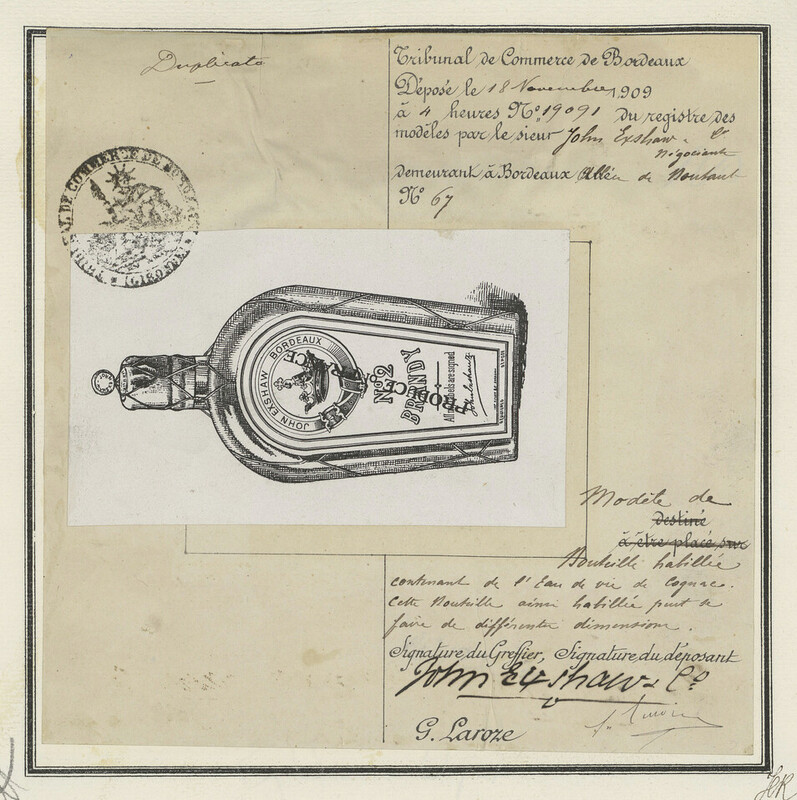 Duplicata
Tribunal de Commerce de Bordeaux
Déposé le 18 Novembre 1909
à 4 heures N° 19091 du registre des
modèles par le sieur John Exshaw & Cº
Négociants
demeurant à Bordeaux Allées de Boutaut
N° 67
TRIBUNAL DE COMMERCE DE BORDEAUX
(GIRONDE)
JOHN EXSHAW BORDEAUX
Nº2
BRANDY
All labels are signed
PRODUCE
Modèle de
destiné
à être placé sur
Bouteille habillée
contenant de l'Eau de vie de Cognac.
Cette Bouteille ainsi habillée peut se
faire de différentes dimensions.
Signature du Greffier, Signature du déposant
John Exshaw & Cº
G. Laroze